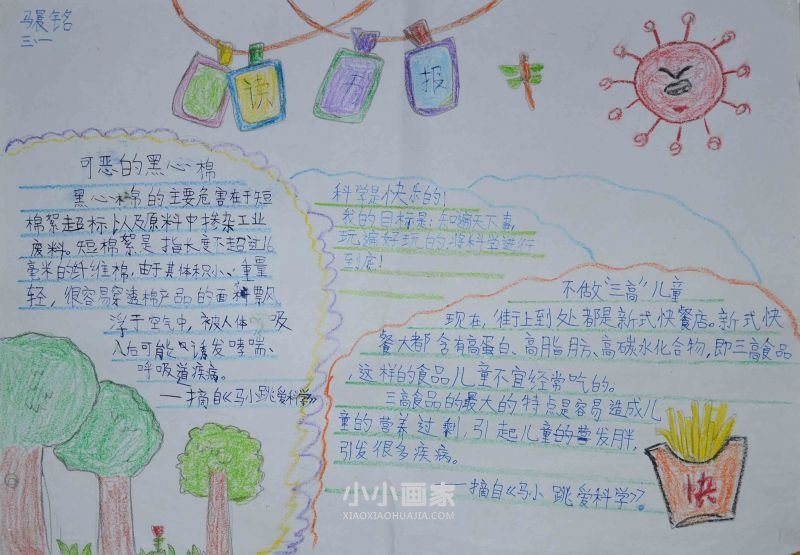 马晨铭
三、一
读 万 报
可恶的黑心棉
黑心棉的主要危害在于短
棉絮超标以及原料中掺杂工业
废料。短棉絮是指长度不超过16
毫米的纤维棉,由于其体积小、重量
轻,很容易穿透棉产品的面料飘
浮于空气中,被人体 吸
入后可能只诱发哮喘、
呼吸道疾病。
——摘自《马小跳爱科学》
科学是快乐的!
我的目标是:知晓天下事,
玩遍好玩的,将科学进行
到底!
不做“三高”儿童
现在,街上到处都是新式快餐店。新式快
餐大都含有高蛋白、高脂肪、高碳水化合物,即三高食品
,这样的食品儿童不宜经常吃的。
三高食品的最大的特点是容易造成儿
童的营养过剩,引起儿童的营发胖,
引发很多疾病。
——摘自《马小跳爱科学》。
快
小小画家
XIAOXIAOHUAJIA.COM